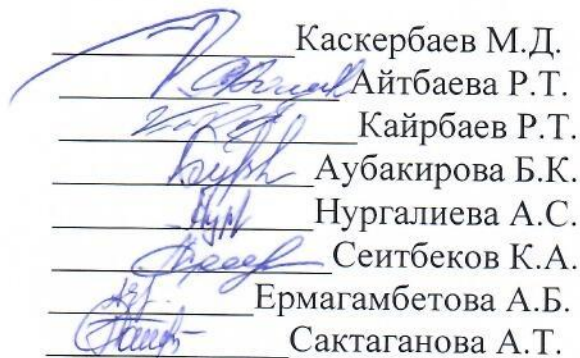 Каскербаев М.Д.
Айтбаева Р.Т.
Кайрбаев Р.Т.
Аубакирова Б.К.
Нургалиева А.С.
Сеитбеков К.А.
Ермагамбетова А.Б.
Сактаганова А.Т.